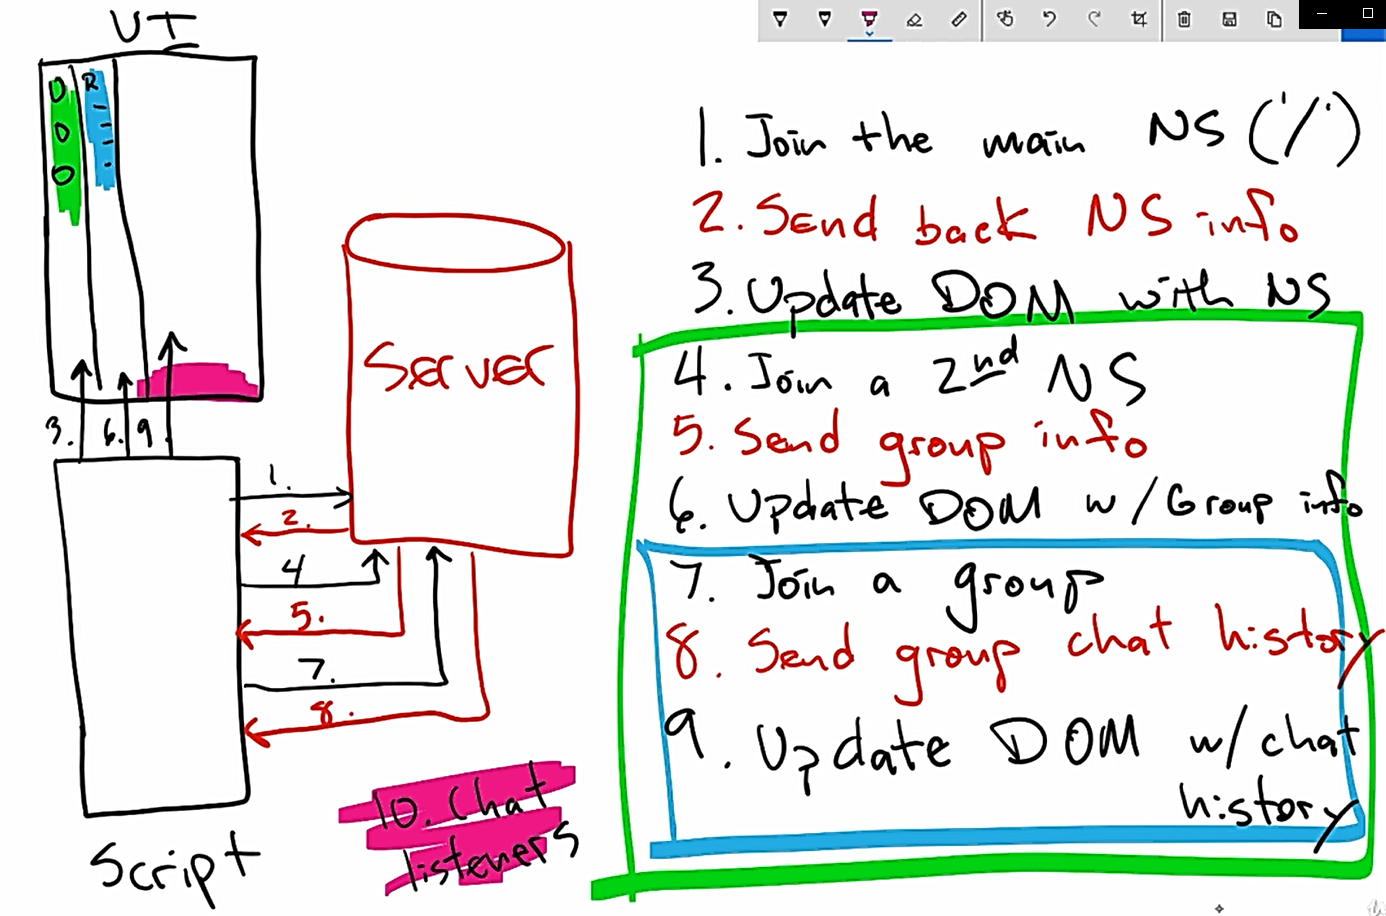 UI
R
3. 6. 9.
Server
1.
2.
4
5.
7.
8.
Script
10. Chat
listeners
1. Join the main NS ('/')
2. Send back NS info
3. Update DOM with NS
4. Join a 2nd NS
5. Send group info
6. Update DOM w/ Group info
7. Join a group
8. Send group chat history
9. Update DOM w/ chat
history